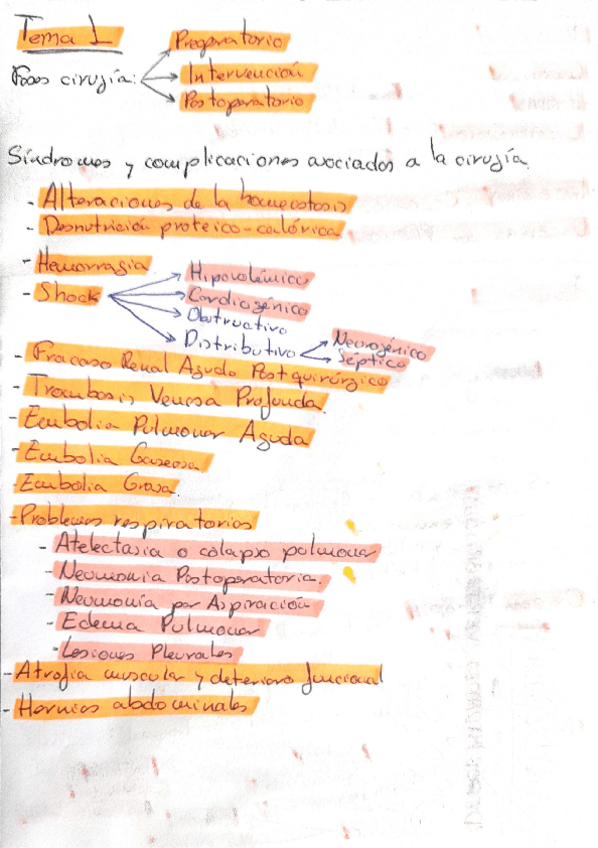 Tema 1
Preoperatorio
Fases cirugía:
Intervención
Postoperatorio
Síndromes y complicaciones asociados a la cirugía.
- Alteraciones de la homeostasis
- Desnutrición proteico-calórica
- Hemorragia
- Shock
Hipovolémico
Cardiogénico
Obstructivo
Distributivo
Neurogénico
Séptico
- Fracaso Renal Agudo Postquirúrgico
- Trombosis Venosa Profunda.
- Embolia Pulmonar Aguda
- Embolia Gaseosa
- Embolia Grasa.
- Problemas respiratorios
- Atelectasia o colapso pulmonar
- Neumonia Postoperatoria.
- Neumonía por Aspiración
- Edema Pulmonar
- Lesiones Pleurales
- Atrofia muscular y deterioro funcional
- Hernias abdominales